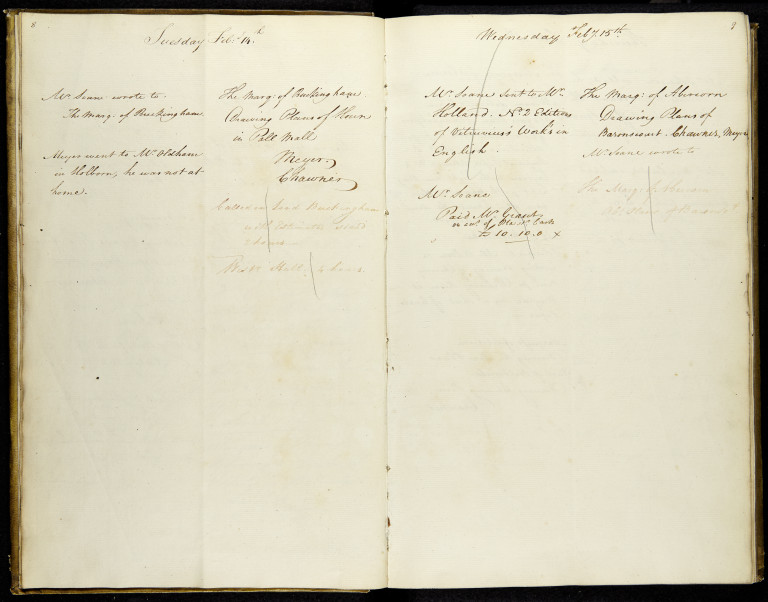 8
Tuesday Feby. 14th
Mr. Soane wrote to
The Marq: of Buckingham
Meyer went to Mr. Oldham
in Holborn, he was not at
home.
The Marq: of Buckingham.
Drawing Plans of House
in Pall Mall
Meyer.
Chawner
Called on Lord Buckingham
with
2 hours
Mall 2 hours
9
Wednesday Feby. 15th.
Mr. Soane sent to Mr.
Holland. No. 2 Editions
of Vitruvius's Works in
English.
Mr. Soane
Paid Mr. Grant
on acct. of
£ 10. 10. 0 x
The Marq: of Abercorn
Drawing Plans of
Baronscourt. Chawner, Meyer
Mr. Soane wrote to
The Marq: of Abercorn